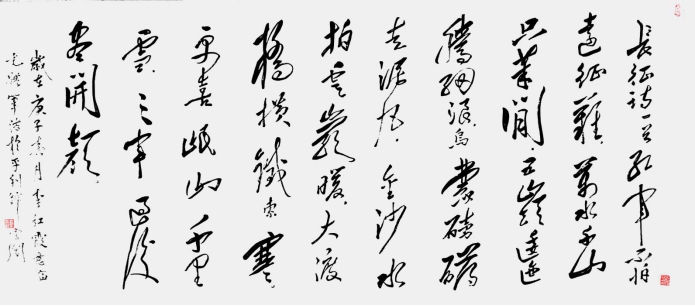 長征詩一首紅軍不怕
遠征難萬水千山
只等閒五嶺逶迤
騰細浪烏蒙磅礴
走泥丸金沙水
拍雲巖暖大渡
橋橫鐵索寒
更喜岷山千里
雪三軍過後
盡開顏
歲在庚子 月李紅霞書